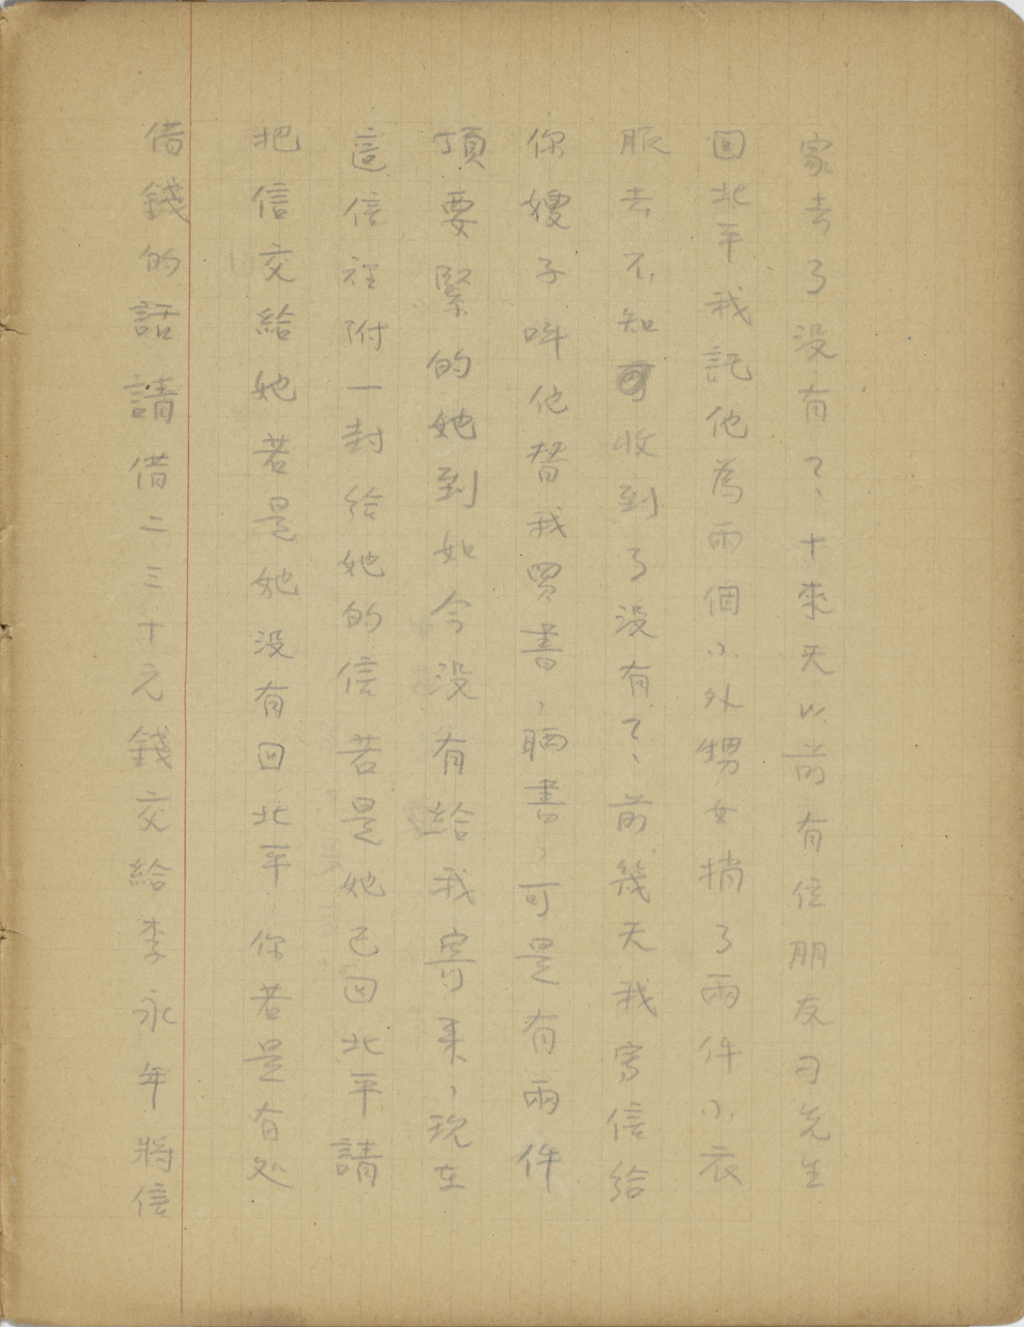 家去了没有？、十來天以前有位朋友刁先生
回北平我託他為兩個小外甥女捎了兩件小衣
服去不知可收到了没有？、前幾天我寫信給
你嫂子呌他替我買書，晒書，可是有兩件
頂要緊的她到如今没有給我寄来，現在
這信裡附一封給她的信若是她已回北平請
把信交給她若是她没有回北平你若是有处
借錢的話請借二三十元錢交給李永年將信